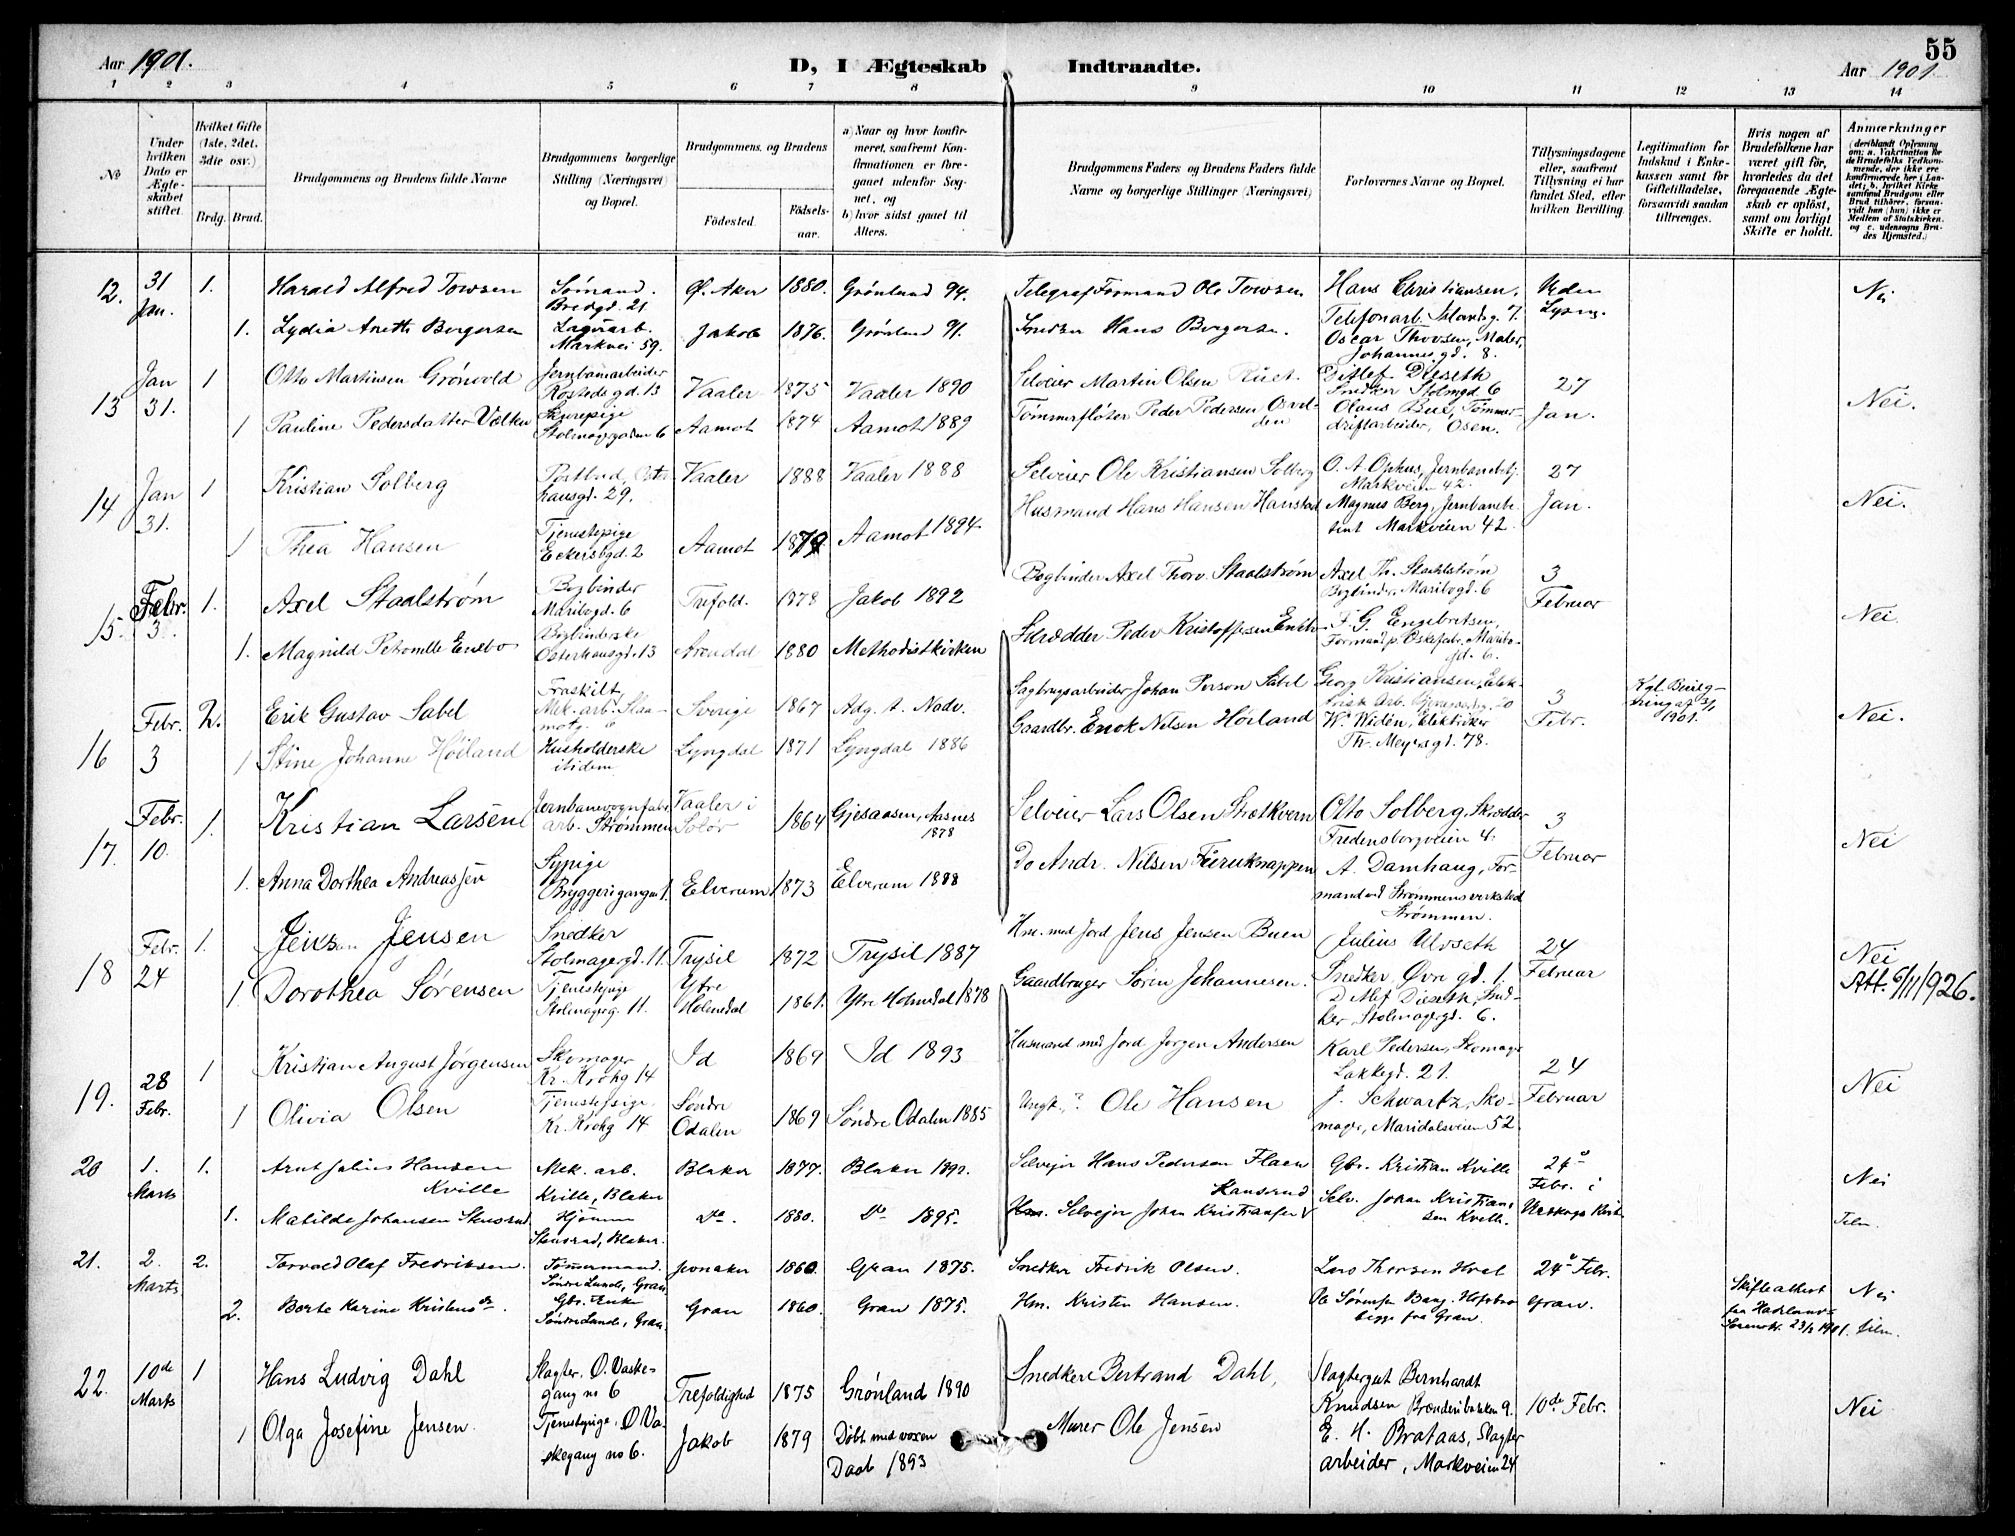 55
Aar 1901.
D, I Ægteskab Indtraadte.
Aar 1901
1 2 3 4 5 6 7 8 9 10 11 12 13 14
No
Under hvilken Dato er Ægteskabet stiftet.
Hvilket Gifte (1ste, 2det, 3die osv.)
Brdg. Brud.
Brudgommens og Brudens fulde Navne
Brudgommens borgerlige Stilling (Næringsvei) og Bopæl.
Brudgommens og Brudens
Födested.
Födselsaar.
a) Naar og hvor konfirmeret, saafremt Konfirmationen er foregaaet udenfor Sognet, og
b) hvor sidst gaaet til Alters.
Brudgommens Faders og Brudens Faders fulde Navne og borgerlige Stillinger (Næringsvei)
Forlovernes Navne og Bopæl.
Tillysningsdagene eller, saafremt Tillysning ei har fundet Sted, efter hvilken Bevilling.
Legitimation for Indskud i Enkekassen samt for Giftetilladelse, forsaavidt saadan tiltrænges.
Hvis nogen af Brudefolkene har været gift før, hvorledes da det foregaaende Ægteskab er oplöst, samt om lovligt Skifte er holdt.
Anmærkninger (deriblandt Oplysning om: a. Vakcination for de Brudefolks Vedkommende, der ikke ere konfirmerede her i Landet; b. hvilket Kirkesamfund Brudgom eller Brud tilhører, forsaavidt han (hun) ikke er Medlem af Statskirken, og c. udensogns Brudes Hjemsted.)
12. 31 Jan. 1. Harald Alfred Towsen Sømand. Bredgd. 21 Ø. Aker 1880. Grønland 94. Telegraf Formand Ole Towsen Hans Christiansen, Telefonarb. 7. Uden Lysn. Nei
1. Lydia Anette Borgersen Markvei 59. Jakob 1876. Grønland 91. Snedker Hans Borgersen. Oscar Thovsen, Maler, Johannesgd. 8.
13 Jan 31. 1 Otto Martinsen Grönvold Jernbanearbeider Rostedsgd. 13 Vaaler 1875 Vaaler 1890 Selveier Martin Olsen Ditlef Dieseth Snedker Stolmgd 6 27 Jan. Nei.
1 Pauline Pedersdatter Stolmagergaden 6 Aamot 1874 Aamot 1889 Tømmerfløter Peder Pedersen Olaus Bue, Tømmerdriftarbeider, Osen.
14 Jan 31. 1 Kristian Solberg Postbud, Osterhausgd. 29. Vaaler 1888 Vaaler 1888 Selveier Ole Kristiansen Solberg O. A. Ophus, Jernbanebetj. Markveien 42. 27 Jan. Nei.
1 Thea Hansen Tjenestepige Eckersbgd. 2 Aamot 1879 Aamot 1894 Husmand Hans Hansen Hanstad Magnus Berg, Jernbanebetjent Markveien 42.
15. Febr. 3. 1. Axel Staalstrøm Bogbinder Maribogd. 6 Trefold. 1878 Jakob 1892 Bogbinder Axel Thorv. Staalstrøm Axel Th. Staahlstrøm Bogbinder, Maribogd. 6 3 Februar Nei.
1. Magnild Petronelle Enebo Bogbinderske Osterhausgd. 13 Arendal 1880 Methodistkirken Skrædder Peder Kristoffersen F. G. Engebretsen, Formand p. Æskefabr. Maribogd. 6.
16 Febr. 3 2. Erik Gustav Sabel Fraskilt, Mek. arb. Sverige 1867 Adg. t. Nadv. Sagbrugsarbeider Johan Person Sabel Georg Kristiansen, Elektrisk Arb. 3 Febr. Kgl. Bevilgning af 3/1 1901. Nei.
1 Stine Johanne Höiland Husholderske ibidem Lyngdal 1871 Lyngdal 1886 Gaardbr. Enok Nilsen Höiland W. Widén, Elektriker Th. Meyersgd. 78.
17. Febr. 10. 1. Kristian Larsen Jernbanevognfabr. arb. Strømmen Vaaler i Solör 1864 Gjesaasen, Aasnes 1878 Selveier Lars Olsen Otto Solberg, Skrædder Fredensborgveien 4. 3 Februar Nei
1. Anna Dorthea Andreassen Sypige Bryggerigangen 1. Elverum 1873 Elverum 1888 Do Andr. Nilsen Furuknappen A. Damhaug, Formand ved Strømmens verksted Strømmen.
18 Febr. 24 1. Jens Jensen Snedker Stolmagergd. 11. Trysil 1872 Trysil 1887 Hm. med Jord Jens Jensen Buen Julius Ulvseth Snedker Øvre gd. 1. 24 Februar Nei
1 Dorothea Sørensen Tjenestepige Stolmagerg. 11. Ytre Holmedal 1861. Ytre Holmedal 1878 Gaardbruger Sören Johannesen. Ditlef Dieseth, Snedker Stolmagergd. 6. Att. 6/11 1926.
19. 28 Febr. 1 Kristian August Jørgensen Skomager Kr. Krohg 14 Id 1869 Id 1893 Husmand med Jord Jørgen Andersen Karl Pedersen, Skomager Lakkegd. 21. 24 Februar Nei
1 Olivia Olsen Tjenestepige. Kr. Krohg 14 Söndre Odalen 1869 Söndre Odalen 1885 Ole Hansen J. Schwartz, Skomager, Maridalsveien 52.
20 1. Marts 1. Arnt Julius Hansen Kville Mek. arb. Kville, Blaker Blaker 1877. Blaker 1892. Selvejer Hans Pedersen Flaen Gbr. Kristian Kville 24de Febr. i Urskogs Kirke Nei
1. Matilde Johansen Stensrud Hjemme Stensrud, Blaker. do. 1880. Do 1895. Selvejer Johan Kristiansen Selv. Johan Kristiansen Kville.
21. 2. Marts 2. Torvald Olaf Fredriksen. Tømmermand. Søndre Lunde, Gran Jevnaker 1860. Gran 1875. Snedker Fredrik Olsen. Lars Thorsen Hval 24de Febr. Nei
2. Berte Karine Kristensdr. Gbr. Enke Søndre Lunde, Gran Gran 1860. Gran 1875. Hm. Kristen Hansen. Ole Sørensen begge fra Gran. Gran. Skifteattest fra Hadeland Sorenskr. 23/2 1901.
22. 10de Marts 1 Hans Ludvig Dahl Slagter. Ø. Vaskegang no 6 Trefoldighed 1875 Grönland 1890 Snedker Bertrand Dahl, Slagtergut Bernhardt Knudsen Brænderibakken 9. 10de Febr. Nei
1 Olga Josefine Jensen Tjenestepige. Ø Vaskegang no 6. Jakob 1879 Döbt med voxen Daab 1893 Murer Ole Jensen E. H. Brataas, Slagterarbeider, Markveien 24